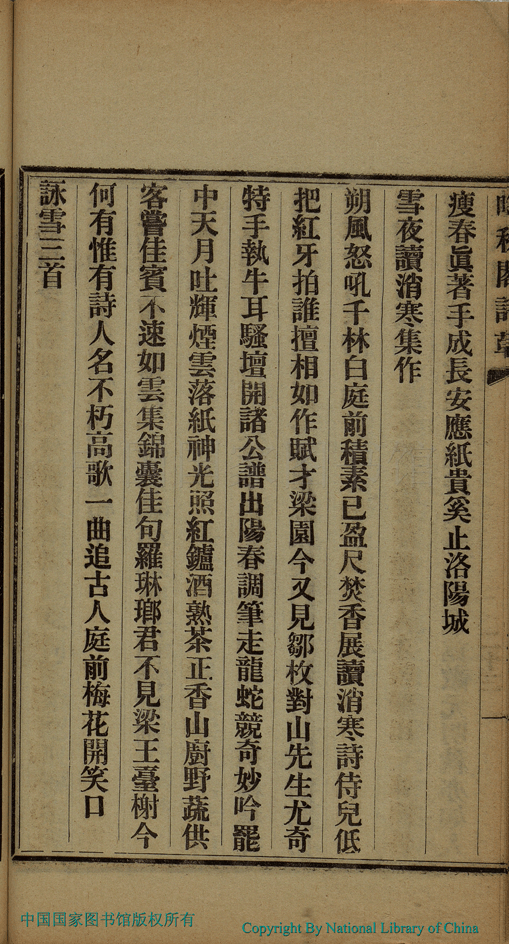 瘦春眞著手成長安應紙貴奚止洛陽城
雪夜讀消寒集作
朔風怒吼千林白庭前積素已盈尺焚香展讀消寒詩侍兒低
把紅牙拍誰擅相如作賦才梁園今又見鄒枚對山先生尤奇
特手執牛耳騷壇開諸公譜出陽春調筆走龍蛇競奇妙吟罷
中天月吐輝煙雲落紙神光照紅鑪酒熟茶正香山廚野蔬供
客嘗佳賓不速如雲集錦囊佳句羅琳瑯君不見梁王臺榭今
何有惟有詩人名不朽高歌一曲追古人庭前梅花開笑口
詠雪三首
中国国家图书馆版权所有
Copyright By National Library of China